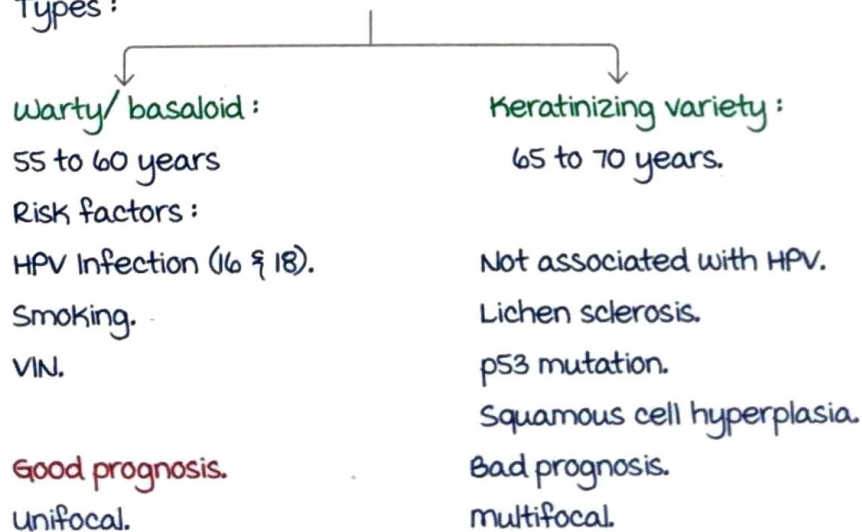 Types :
Warty/ basaloid :
55 to 60 years
Risk factors :
HPV Infection (16 & 18).
Smoking.
VIN.
Good prognosis.
unifocal.
Keratinizing variety :
65 to 70 years.
Not associated with HPV.
Lichen sclerosis.
p53 mutation.
Squamous cell hyperplasia.
Bad prognosis.
multifocal.